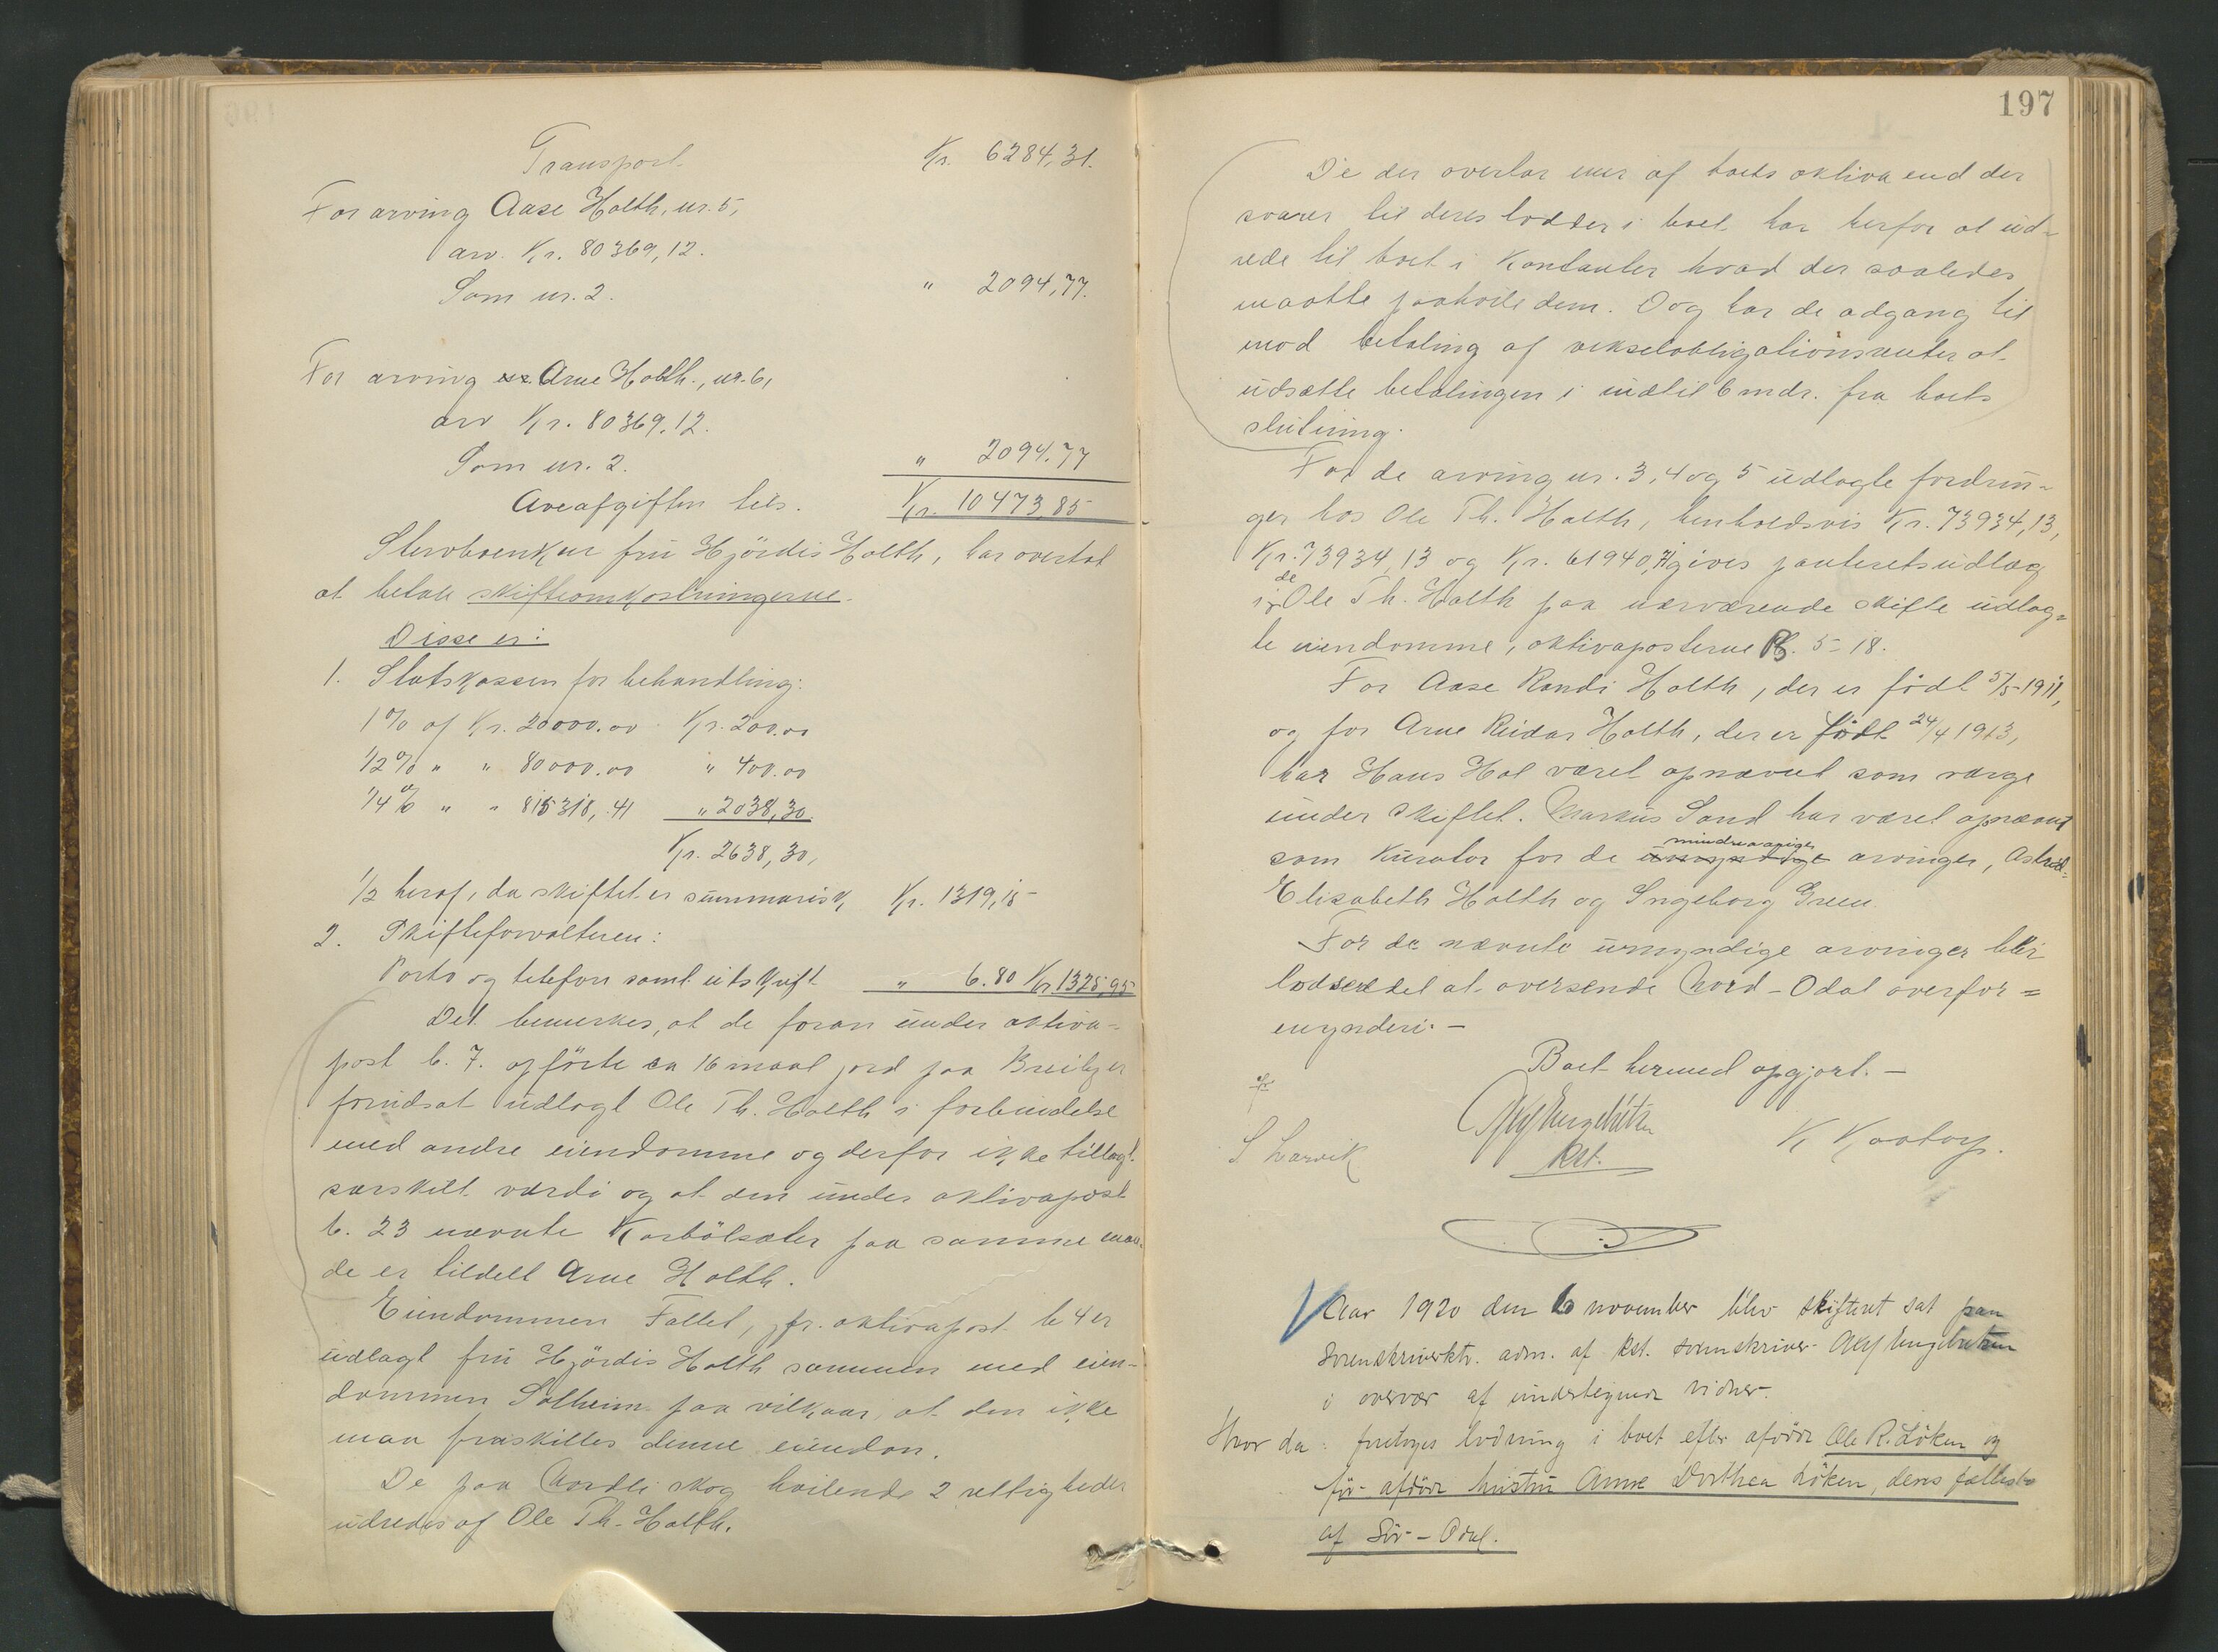 Transport Kr. 6284,31.
For arving Aase Holth, nr. 5,
arv. Kr. 80369,12.
Som nr. 2. " 2094,77.
For arving Arne Holth., nr. 6,
arv Kr. 80369,12.
Som nr. 2. " 2094.77
Arveafgiften tils. Kr. 10473,85
Stervboenken fru Hjördis Holth, har overtat
at betale skifteomkostningerne.
Disse er:
1. Statskassen for behandling:
1% af Kr. 20000.00 Kr. 200.00
1/2% " " 80000.00 " 400.00
1/4% " " 815318,.41 " 2038,30.
Kr. 2638,30,
1/2 heraf, da skiftet er summarisk, Kr. 1319,15
2. Skifteforvalteren:
Porto og telefon samt utskrift " 6.80 Kr. 1325,95
Det bemerkes, at de foran under aktiva-
post b. 7. opförte ca 16 maal jord paa er
forudsat udlagt Ole Th. Holth i forbindelse
med andre eiendomme og derfor ikke tillagt
særskilt værdi og at den under aktivapost
b. 23 nævnte Karbölsæter paa samme maa-
de er tildelt Arne Holth.
Eiendommen Fallet, jfr. aktivapost b 4 er
udlagt fru Hjördis Holth sammen med eien-
dommen Solheim paa vilkaar, at den ikke
maa fraskilles denne eiendom.
De paa Nordli skog hvilende 2 rettigheder
udredes af Ole Th. Holth.
197
De der overtar mer af boets aktiva end der
svarer til deres lodder i boet har herfor at ud-
rede til boet i Kontanter hvad der saaledes
maatte paahvile dem. Dog har de adgang til
mod betaling af vekselobligationsrenter at
udsætte betalingen i indtil 6 mdr. fra boets
slutning.
For de arving nr. 3, 4 og 5 udlagte fordrin-
ger hos Ole Th. Holth, henholdsvis Kr. 73934,13,
Kr. 73934,13 og Kr. 61940,71 gives panteretsudlæg
i de Ole Th. Holth paa nærværende skifte udlag-
te eiendomme, aktivaposterne B. 5-18.
For Aase Randi Holth, der er födt 5/5-1911,
og for Arne Reidar Holth, der er födt 24/4 1913,
har Hans Hol været opnævnt som værge
under skiftet. Markus Sand har været opnævnt
som Kurator for de mindreaarige arvinger, Astrid
Elisabeth Holth og Ingeborg Green.
For de nævnte umyndige arvinger blir
lodseddel at oversende Nord-Odal overfor=
mynderi. -
Boet hermed opgjort. -
S Larvik
Kst.
K Kaatorp.
Aar 1920 den 6 november blev skifteret sat paa
Sorenskriverktr. adm. af kst. sorenskriver Alf Engebretsen
i overvær af undertegnede vidner.
Hvor da: foretoges lodning i boet efter afdöde Ole R. Löken og
för afdöde hustru Anne Dorthea Löken, deres fællesbo
af Sör-Odal.